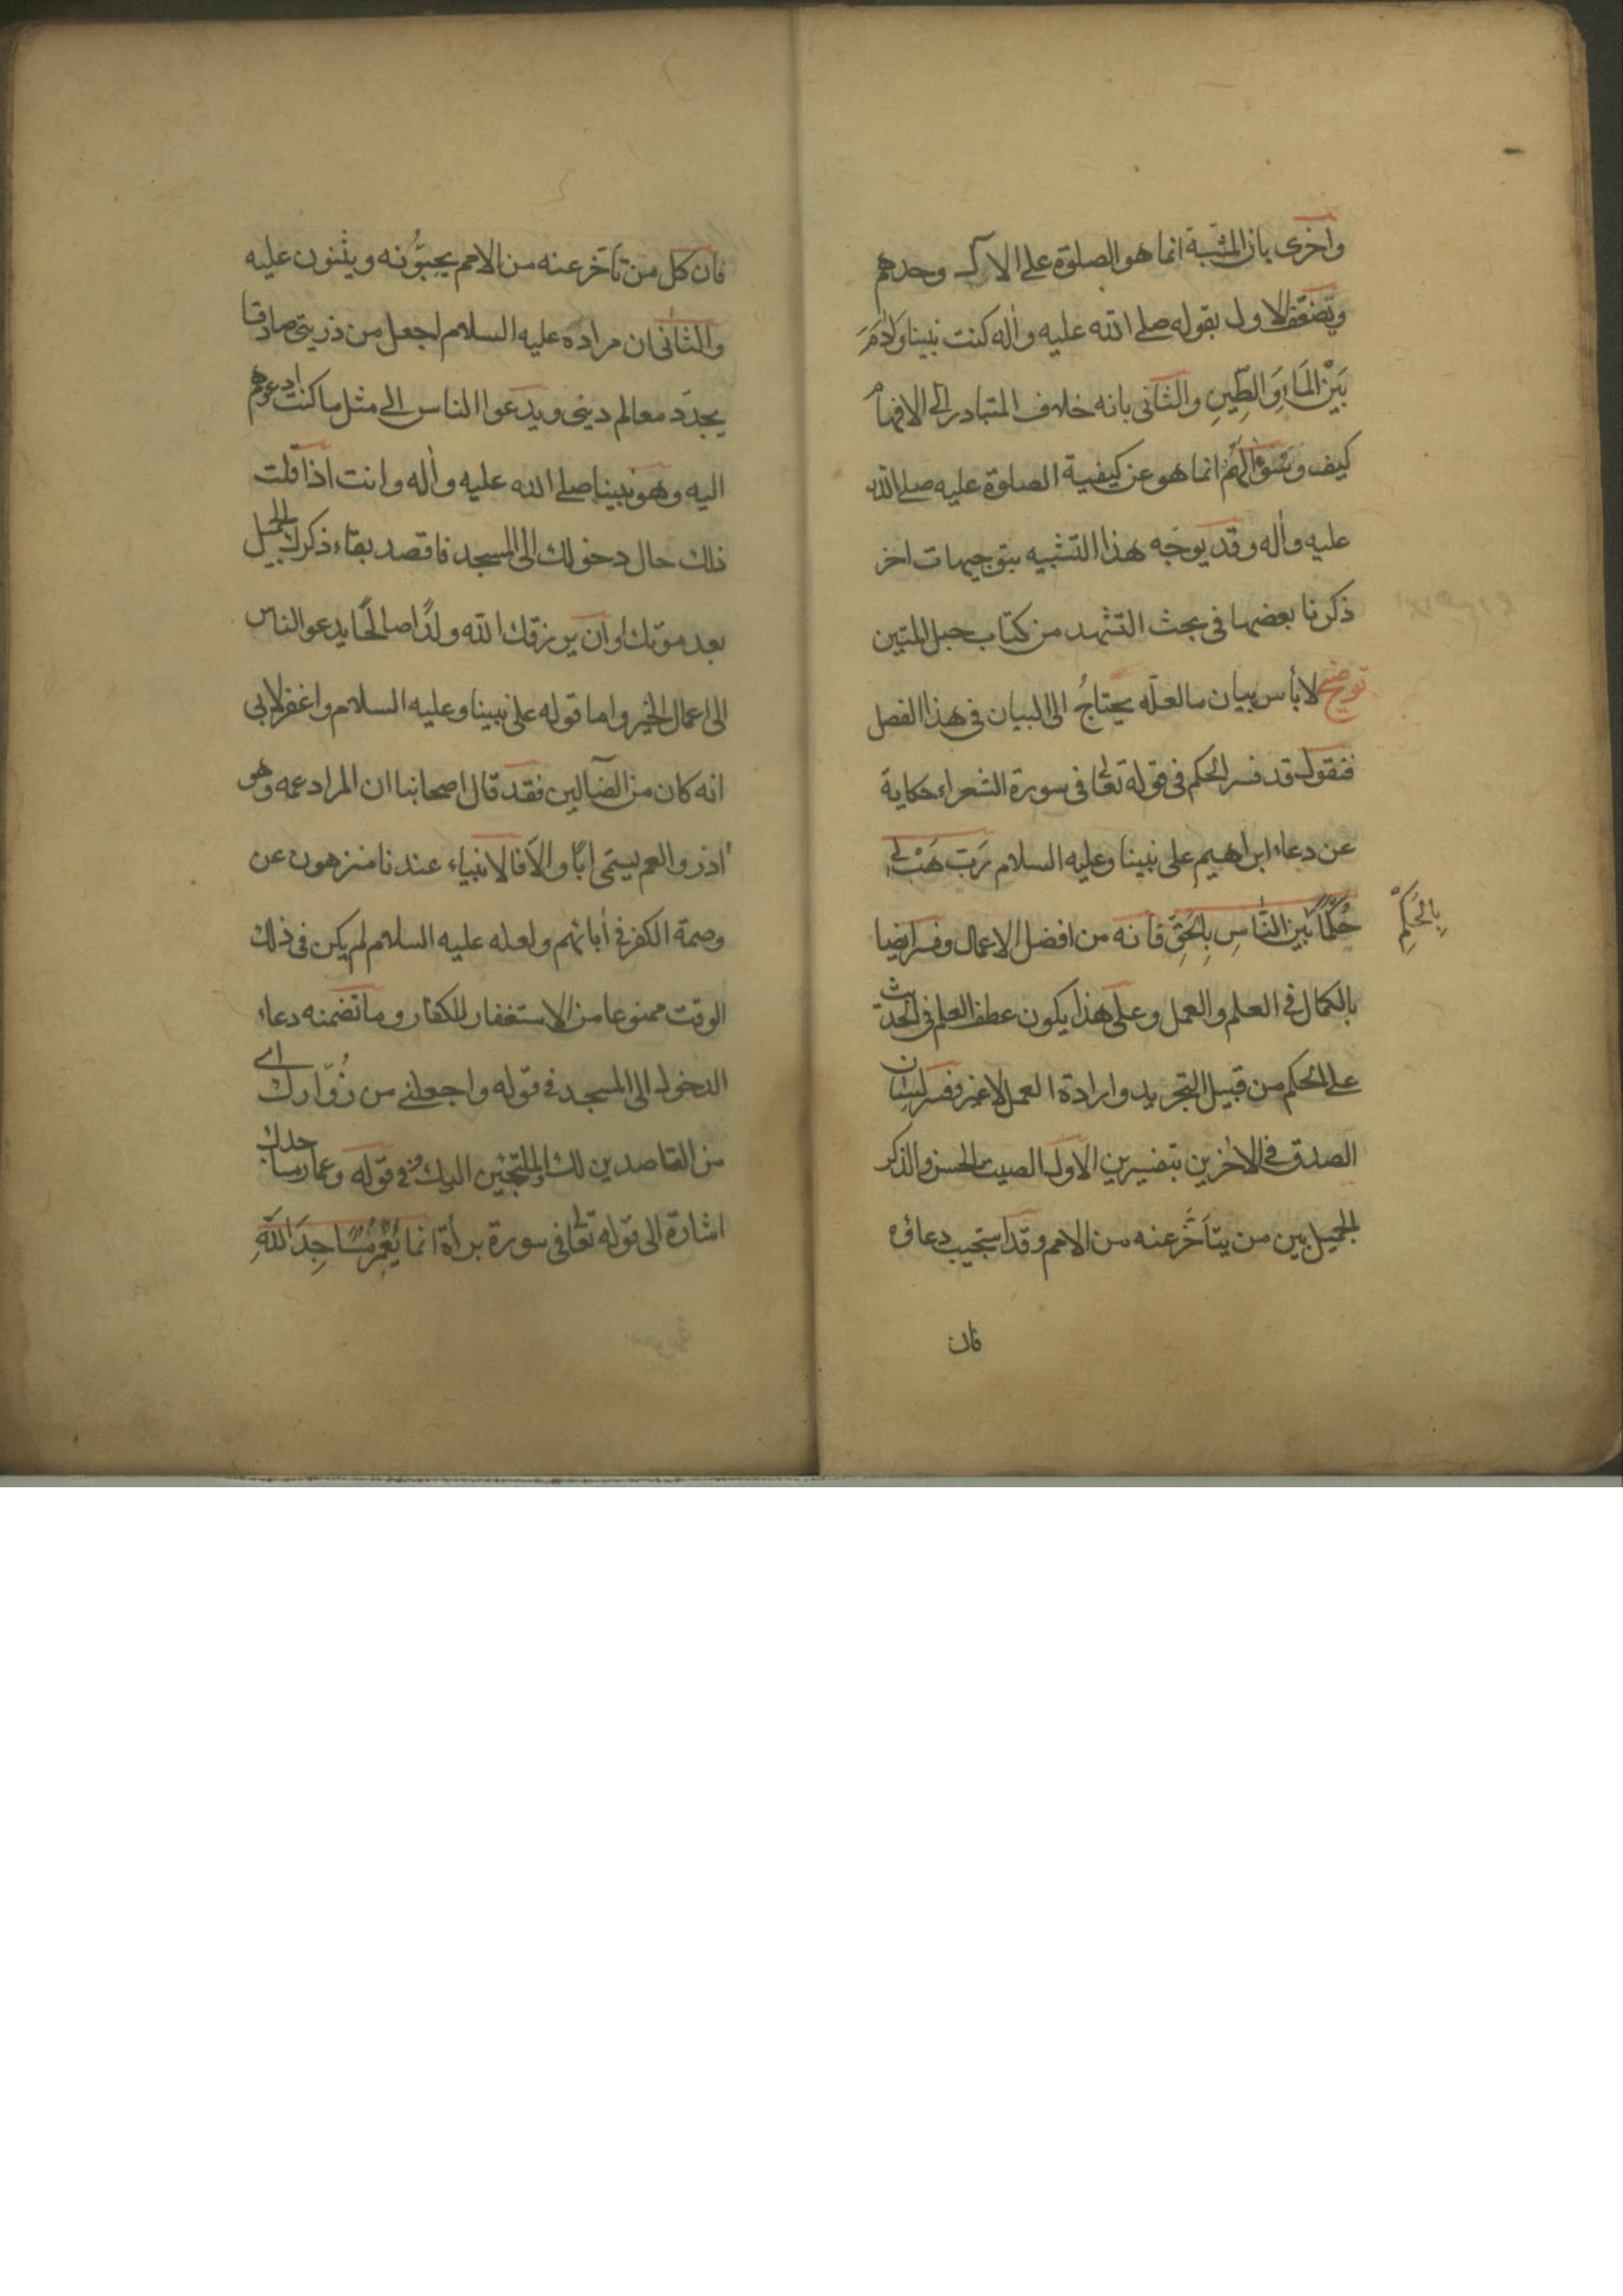 واخرى بان المشبة انما هو الصلوة على الال وحدهم
ويضعّف الاول بقوله صلى الله عليه واله كنت نبيا وَادَمَ
بَيْنَ المَاءِ وَالطّينِ والثانى بانه خلاف المتبادر الى الافهام
كيف وسَؤالهُم انما هو عن كيفية الصلوة عليه صلى الله
عليه واله وقد يوجّه هذا التشبيه بتوجيهات اخر
ذكرنا بعضها فى بحث التشهد من كتاب حبل المتين
توضيح لا بأس ببيان ما لعلّه يحتاجُ الى البيان فى هذا الفصل
فنقول قد فسر الحكم فى قوله تعالى فى سورة الشعراء حكاية
عن دعاء ابراهيم على نبينا وعليه السلام رَبّ هَبْ لى
حُكمًا بين النّاسِ بِالحَقّ فانه من افضل الاعمال وفسر ايضا
بِالحُكمِ
بالكمال فى العلم والعمل وعلى هذا يكون عطف العلم فى الحديث
على الحكم من قبيل التجريد وارادة العمل لا غير وفسر لسان
الصدق فى الاخرين بتفسيرين الاول الصيت الحسن والذكر
الجميل بين من يتأخّر عنه من الامم وقد استجيب دعاؤه
فان
فان كل من تأخر عنه من الامم يحبّونه ويثنون عليه
والثانى ان مراده عليه السلام اجعل من ذريتى صادقا
يجدّد معالم دينى ويدعوا الناس الى مثل ما كنت ادعوهم
اليه وهو نبينا صلى الله عليه واله وانت اذا قلت
ذلك حال دخولك الى المسجد فاقصد بقاء ذكرك الجميل
بعد موتك او ان يرزقك الله ولدًا صالحًا يدعو الناس
الى اعمال الخير واما قوله على نبينا وعليه السلام واغفر لابى
انه كان من الضآلين فقد قال اصحابنا ان المراد عمه وهو
اذر والعم يسمى ابًا والّا فالانبياء عندنا منزهون عن
وصمة الكفر فى ابائهم ولعله عليه السلام لم يكن فى ذلك
الوقت ممنوعا من الاستغفار للكفار وما تضمنه دعاء
الدخول الى المسجد فى قوله واجعلنى من زُوّارك اى
من القاصدين لك والملتجئين اليك وفى قوله وعمار مساجدك
اشارة الى قوله تعالى فى سورة برأة انما يَعْمُرُ مَسَاجِدَ اللّهِ